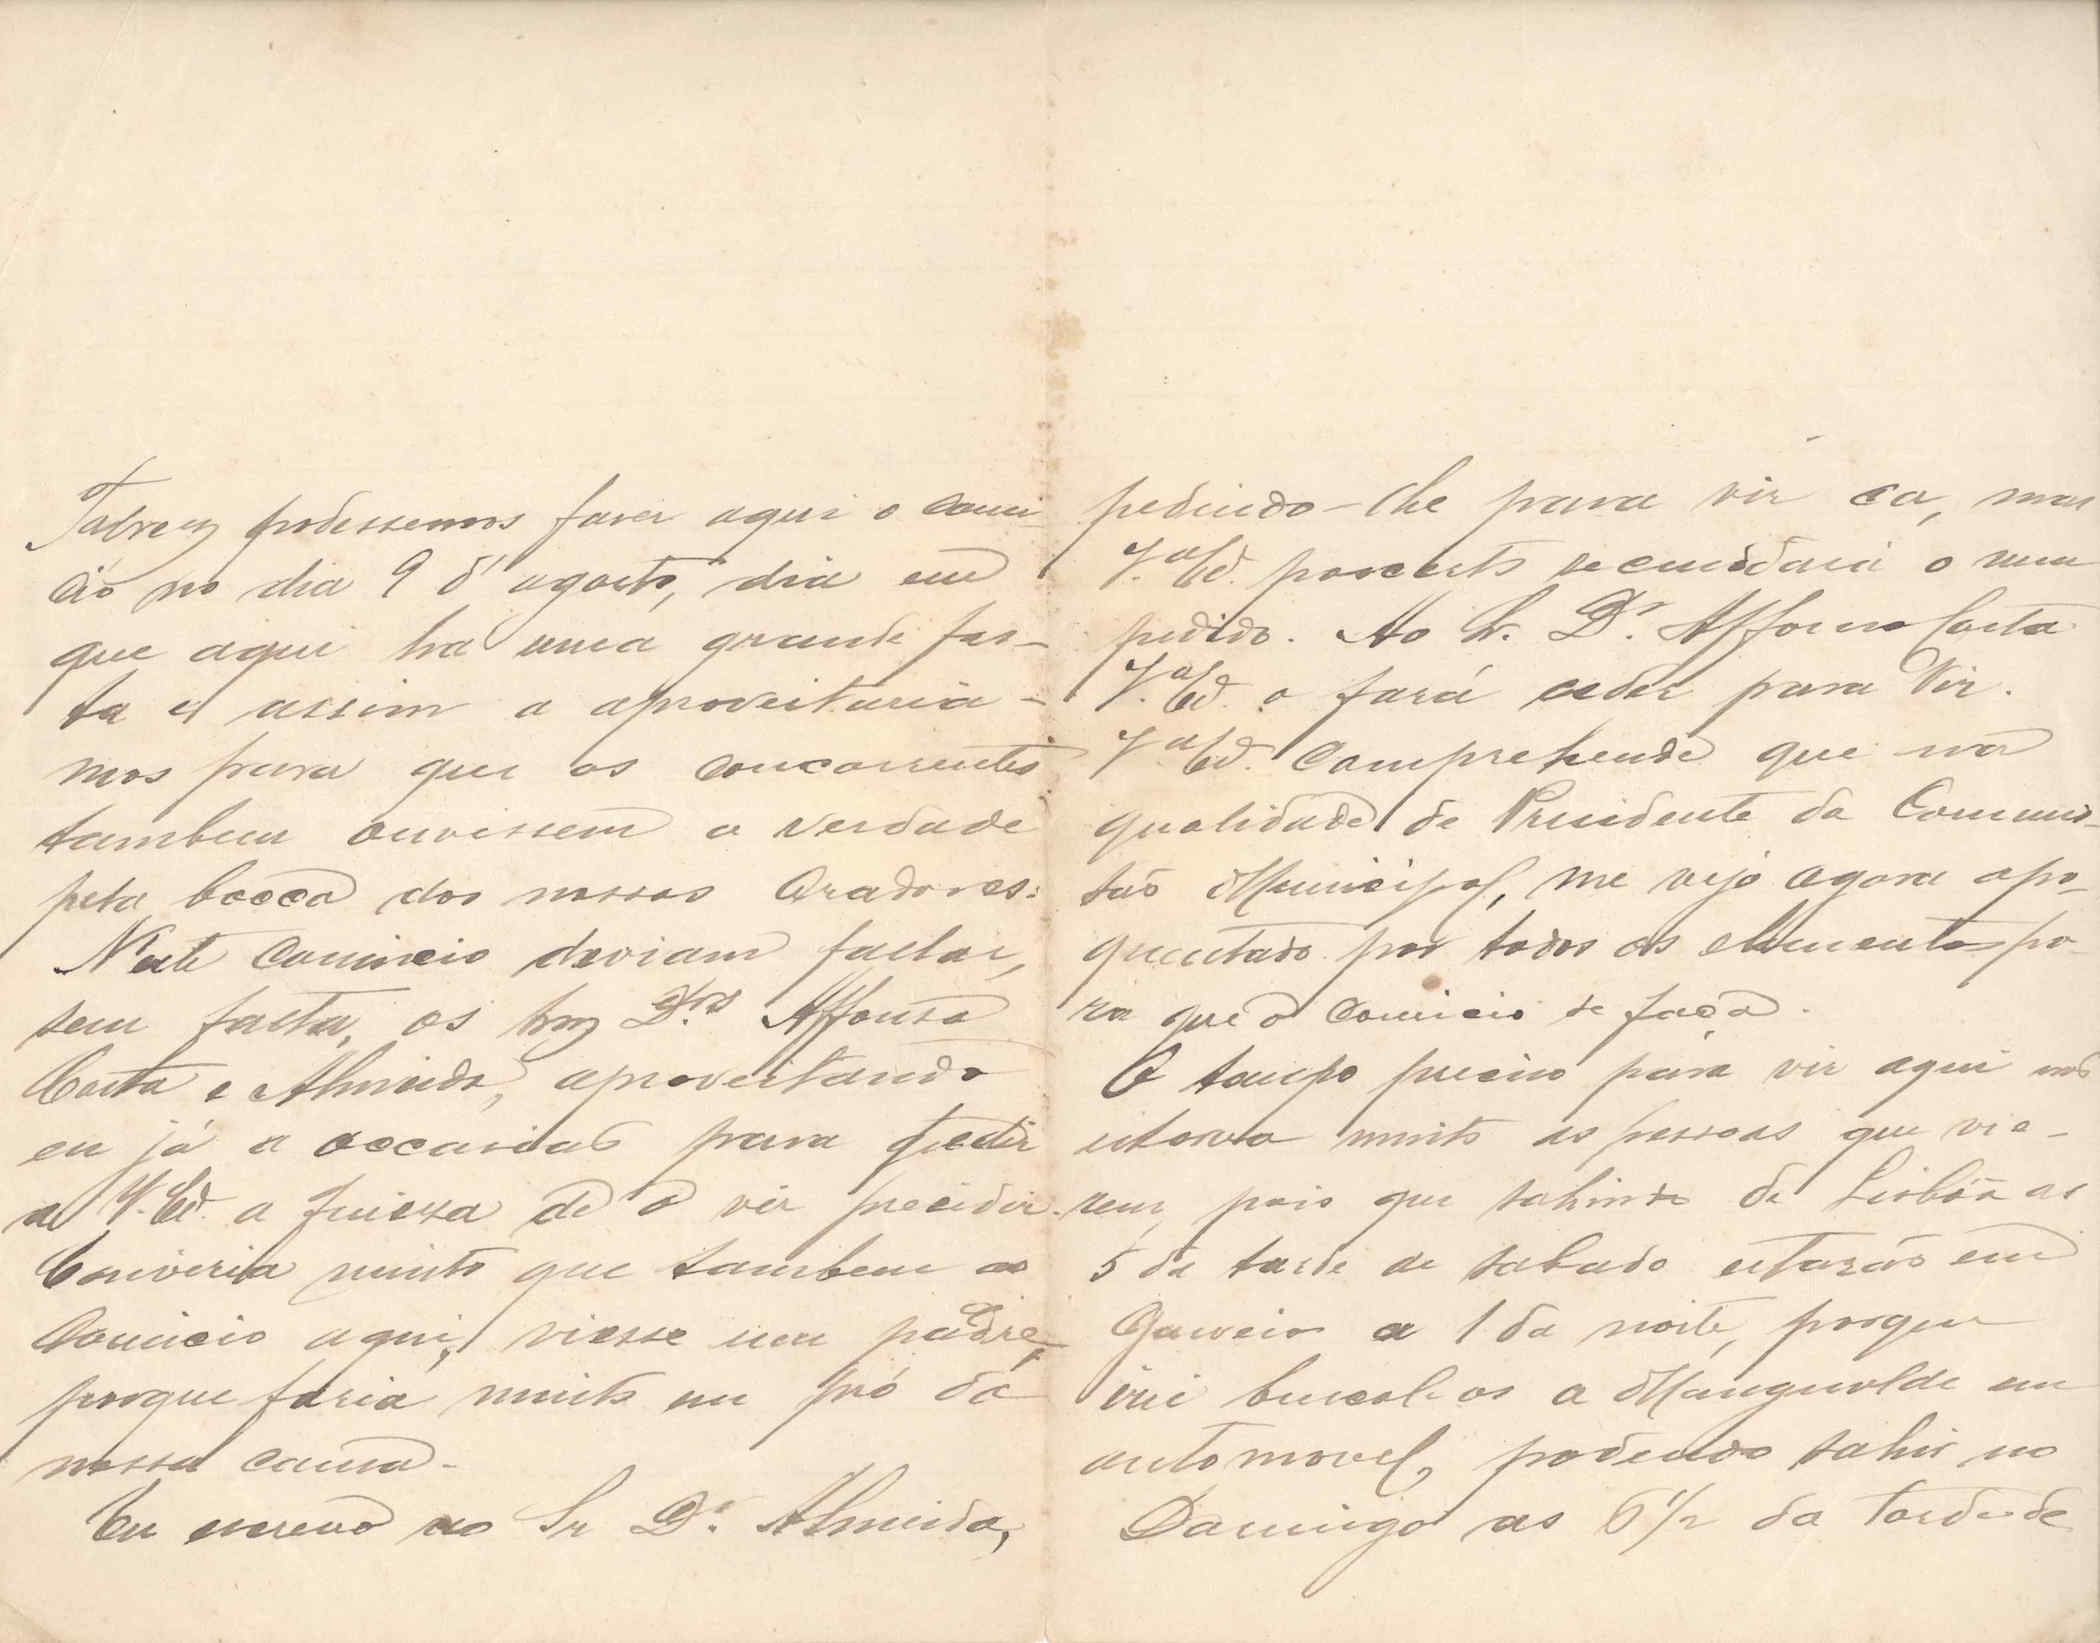 Talvez podessemos fazer aqui o comi-
cio no dia 9 d'agosto, dia em
que aqui ha uma grande fes-
ta e assim a aproveitaria-
mos para que os concorrentes
tambem ouvissem a verdade
pela bocca dos nossos Oradores.
N'este Comicio deviam fallar,
sem falta, os Drs Affonso
Costa e Almeida, aproveitando
eu já a occasião para pedir
a V. Ex. a fineza de o vir presidir.
Conviria muito que tambem ao
Comicio aqui, viesse um padre,
porque faria muito em pró da
nossa causa.
Eu escrevo ao Sr Dr. Almeida,
pedindo-lhe para vir ca, mas
V.a Ex. por certo secundará o meu
pedido. Ao Sr. Dr. Affonso Costa
V.a Ex. o fará ceder para vir.
V.a Ex. Comprehende que na
qualidade de Presidente da Commis-
são Municipal, me vejo agora apo-
quentado por todos os elementos pa-
ra que o Comicio se faça.
O tempo preciso para vir aqui não
estorva muito as pessoas que vie-
rem, pois que sahindo de Lisbôa as
5 da tarde de sabado estarão em
Gouveia a 1 da noite, porque
irei buscal-os a Mangualde em
automovel, podendo sahir no
Domingo as 6 1/2 da tarde de